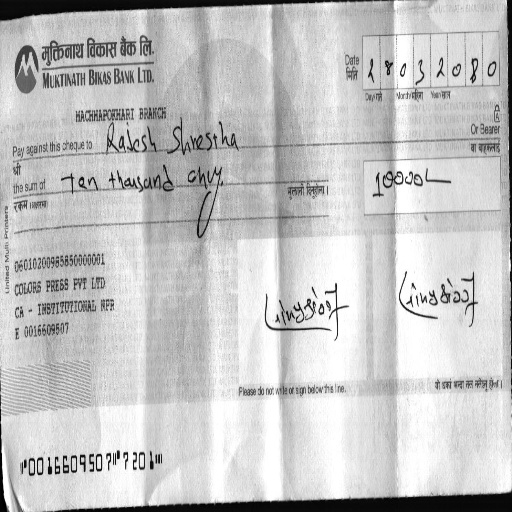 मुक्तिनाथ विकास बैंक लि.
MUKTINATH BIKAS BANK LTD.
Date
मिति
2 8 0 3 2 0 8 0
Day/गते Month/महिना Year/साल
MACHHAPOKHARI BRANCH
Pay against this cheque to Rakesh Shrestha Or Bearer
श्री वा बाहकलाई
the sum of Ten thousand only.
रकम (अक्षरमा)
10000/-
United Multi Printers
06010200985850000001
COLORS PRESS PVT LTD
CA - INSTITUTIONAL NPR
E 0016609507
Please do not write or sign below this line.
⑈0016609507⑈7201⑈